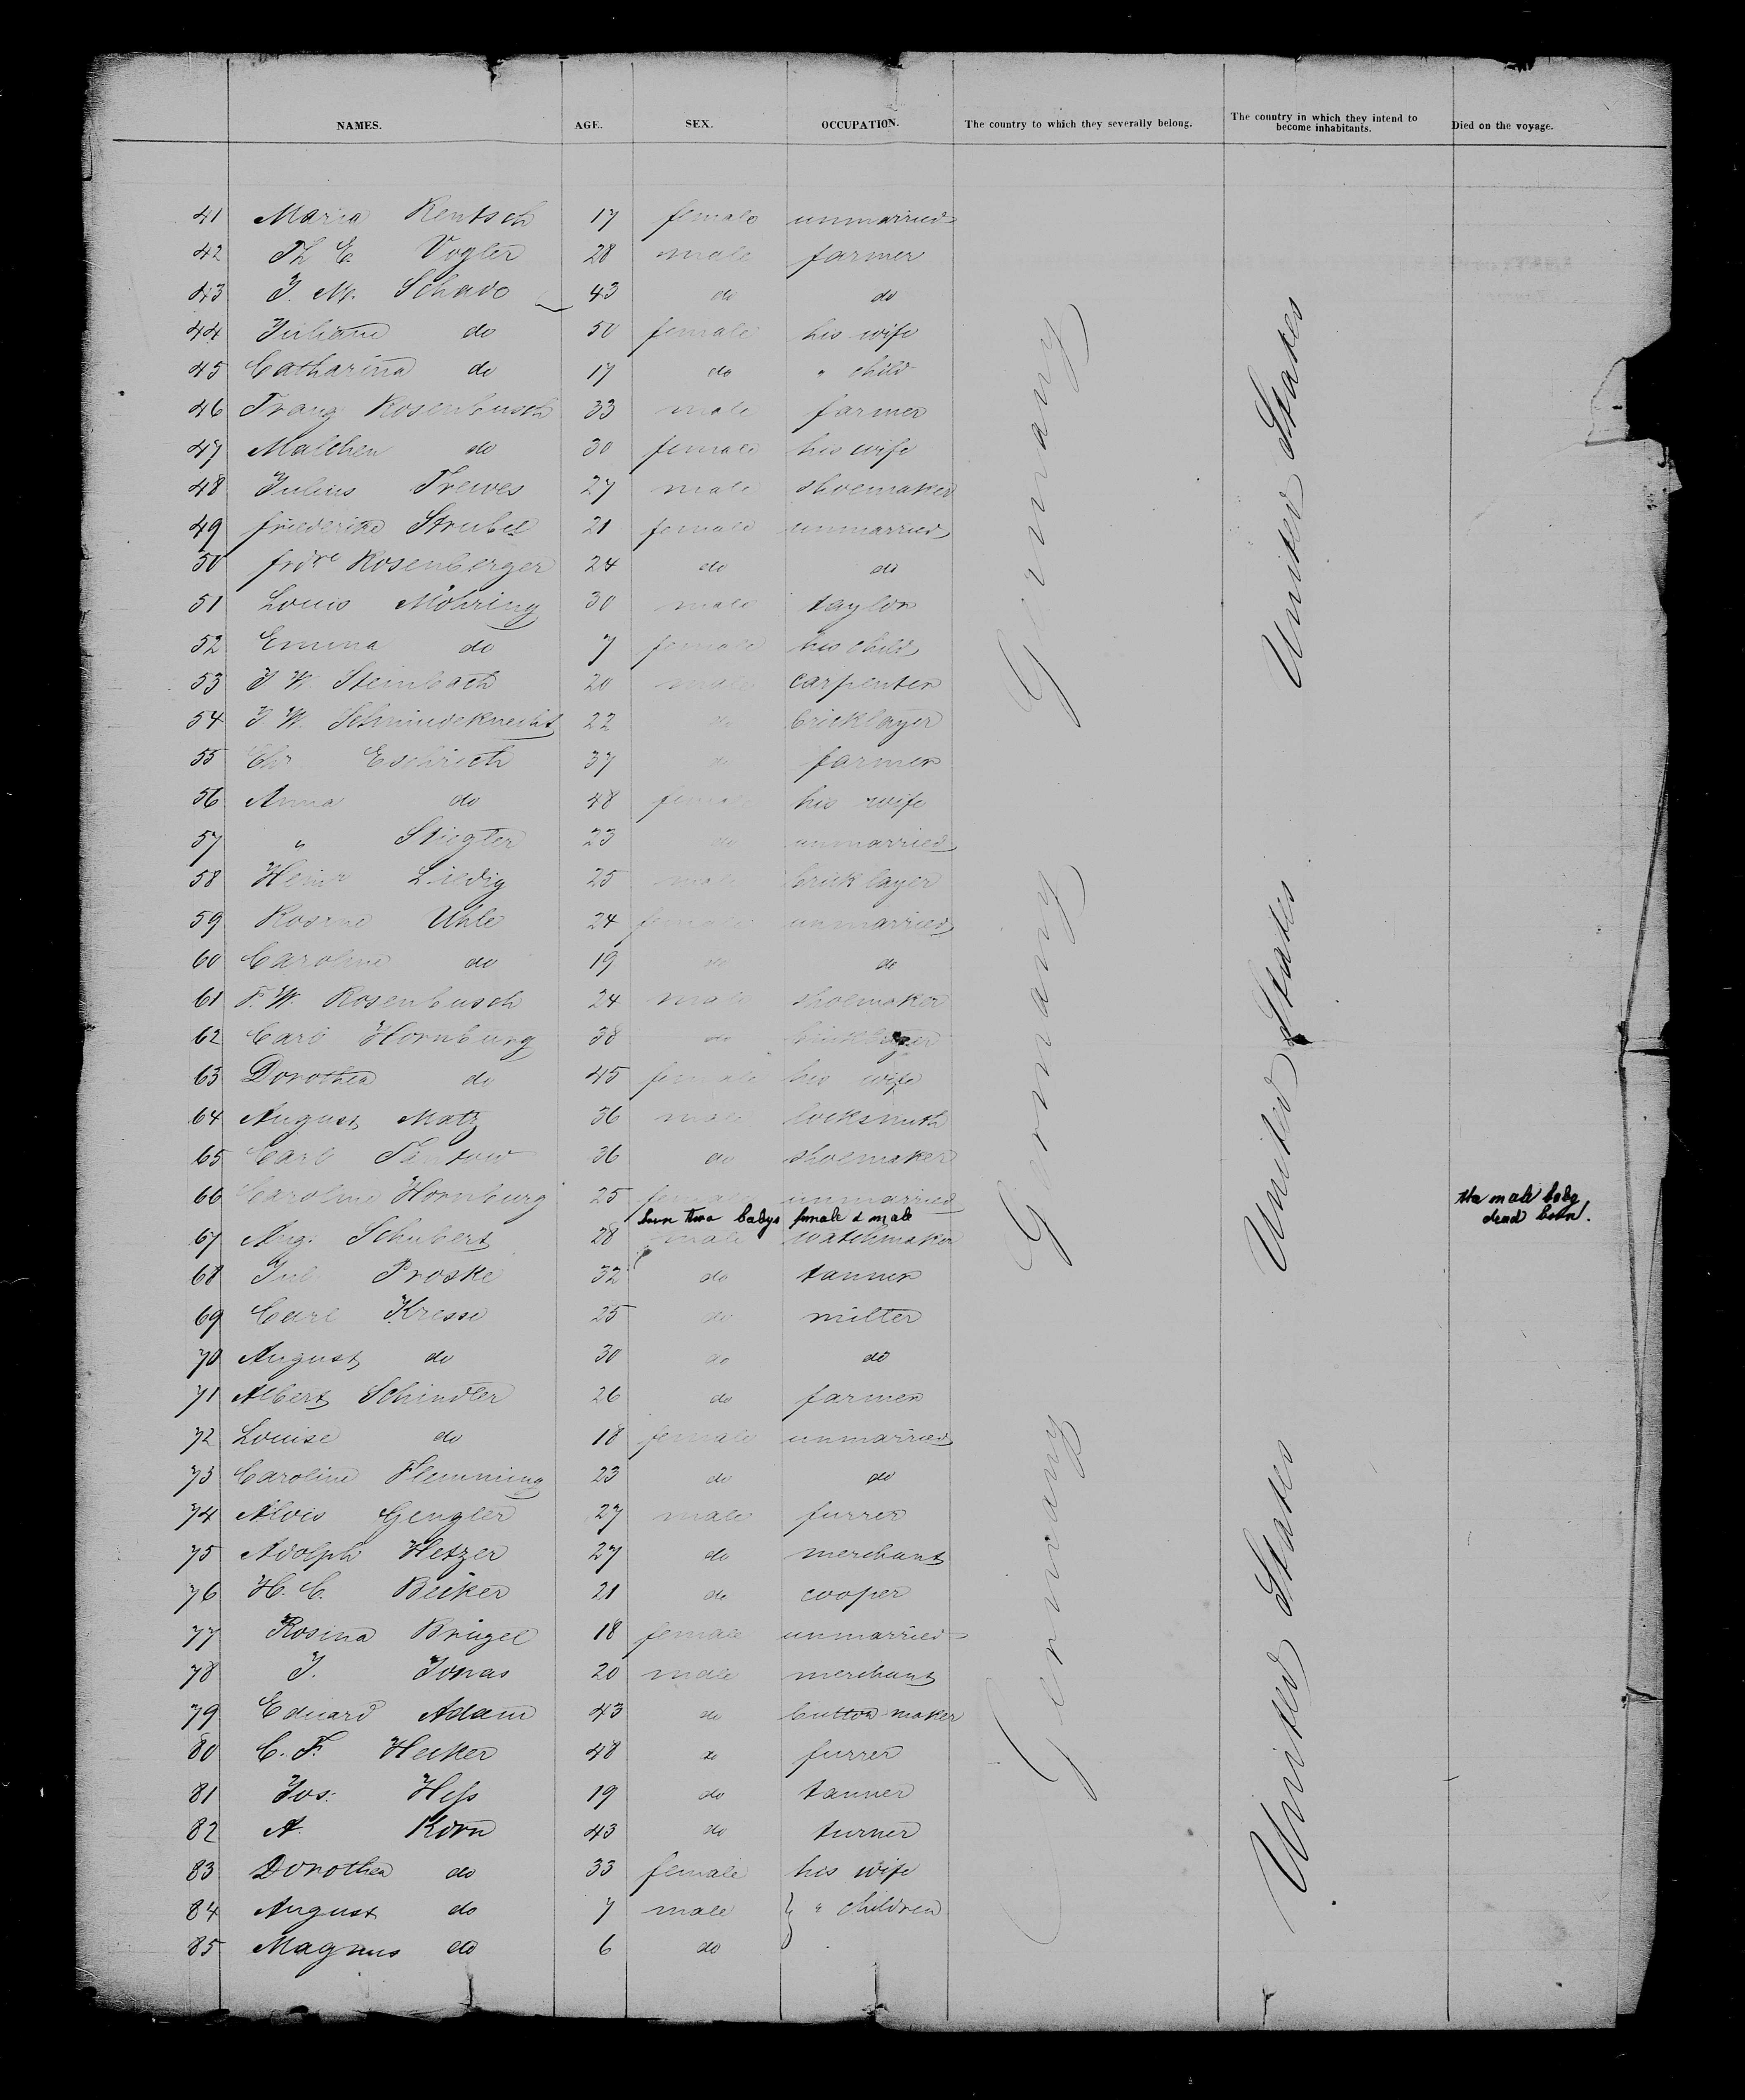 NAMES. AGE. SEX. OCCUPATION. The country to which they severally belong. The country in which they intend to become inhabitants. Died on the voyage.
41 Maria Rentsch 17 female unmarried
42 Th E. Vogler 28 male farmer
43 J. M. Schado 43 do do
44 Juliane do 50 female his wife
45 Catharina do 17 do " child
46 Franz Rosenbusch 33 male farmer
47 Malchen do 30 female his wife
48 Julius Trewes 27 male shoemaker
49 friederike Strubel 21 female unmarried
50 frdre Rosenberger 24 do do
51 Louis Möhring 30 male taylor
52 Emma do 7 female his child
53 J W. Steinbach 20 male carpenter
54 J W. Schmiedeknecht 22 do bricklayer
55 Chr Eschrich 37 do farmer
56 Anna do 48 female his wife
57 " Stiegler 23 do unmarried
58 Heinr Liedig 25 male brick layer
59 Rosine Uhle 24 female unmarried
60 Caroline do 19 do do
61 F. W. Rosenbusch 24 male shoemaker
62 Carl Hornburg 38 do bricklayer
63 Dorothea do 45 female his wife
64 August Matz 36 male locksmith
65 Carl 36 do shoemaker
66 Caroline Hornburg 25 female unmarried
born two babys female & male the male baby
dead born.
67 Aug. Schubert 28 male watchmaker
68 Jul Proske 32 do tanner
69 Carl Kresse 25 do miller
70 August do 30 do do
71 Albert Schindler 26 do farmer
72 Louise do 18 female unmarried
73 Caroline Flemming 23 do do
74 Alois Gengler 27 male furrer
75 Adolph Hetzer 27 do merchant
76 H. C. Becker 21 do cooper
77 Rosina Brügel 18 female unmarried
78 J. Jonas 20 male merchant
79 Eduard Adam 43 do button maker
80 C. F. Hecker 48 do furrer
81 Jos. Heſs 19 do tanner
82 A. Korn 43 do turner
83 Dorothea do 33 female his wife
84 August do 7 male " children
85 Magnus do 6 do
Germany United States
Germany United States
Germany United States